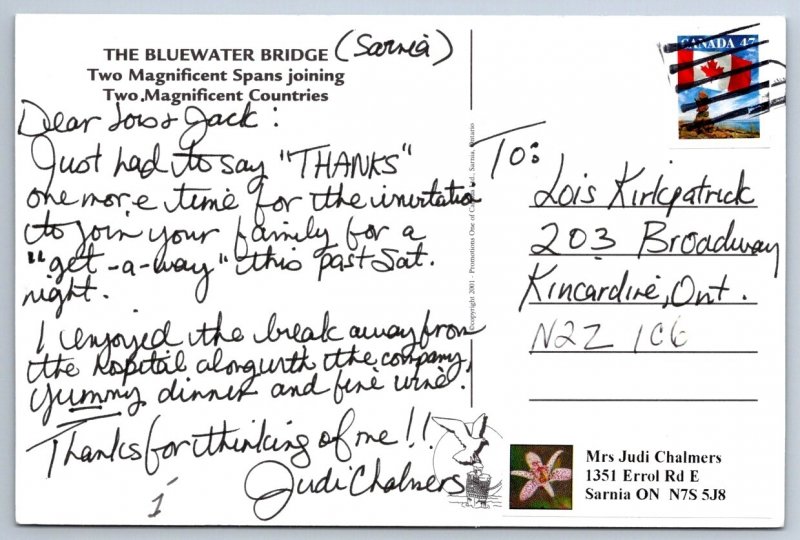 THE BLUEWATER BRIDGE (Sarnia)
Two Magnificent Spans joining
Two Magnificent Countries
Dear Lois & Jack :
Just had to say "THANKS"
one more time for the invitation
to join your family for a
"get-a-way" this past Sat.
night.
I enjoyed the break away from
the hospital along with the company,
yummy dinner and fine wine.
Thanks for thinking of me!!
Judi Chalmers
©copyright 2001 - Promotions One of Canada Ltd., Sarnia, Ontario
CANADA 47
To:
Lois Kirkpatrick
203 Broadway
Kincardine, Ont.
N2Z 1C6
Mrs Judi Chalmers
1351 Errol Rd E
Sarnia ON N7S 5J8